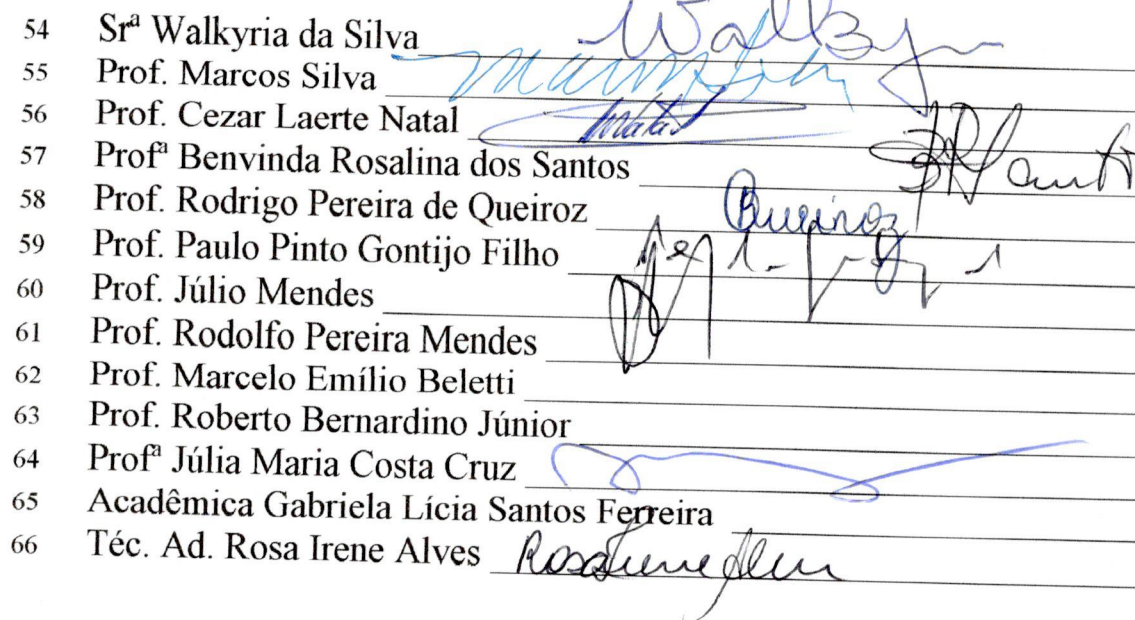 54 Srª Walkyria da Silva Walky
55 Prof. Marcos Silva Marcos Silva
56 Prof. Cezar Laerte Natal Natal
57 Profª Benvinda Rosalina dos Santos BRSantos
58 Prof. Rodrigo Pereira de Queiroz Queiroz
59 Prof. Paulo Pinto Gontijo Filho
60 Prof. Júlio Mendes
61 Prof. Rodolfo Pereira Mendes
62 Prof. Marcelo Emílio Beletti
63 Prof. Roberto Bernardino Júnior
64 Profª Júlia Maria Costa Cruz
65 Acadêmica Gabriela Lícia Santos Ferreira
66 Téc. Ad. Rosa Irene Alves Rosa Irene Alves